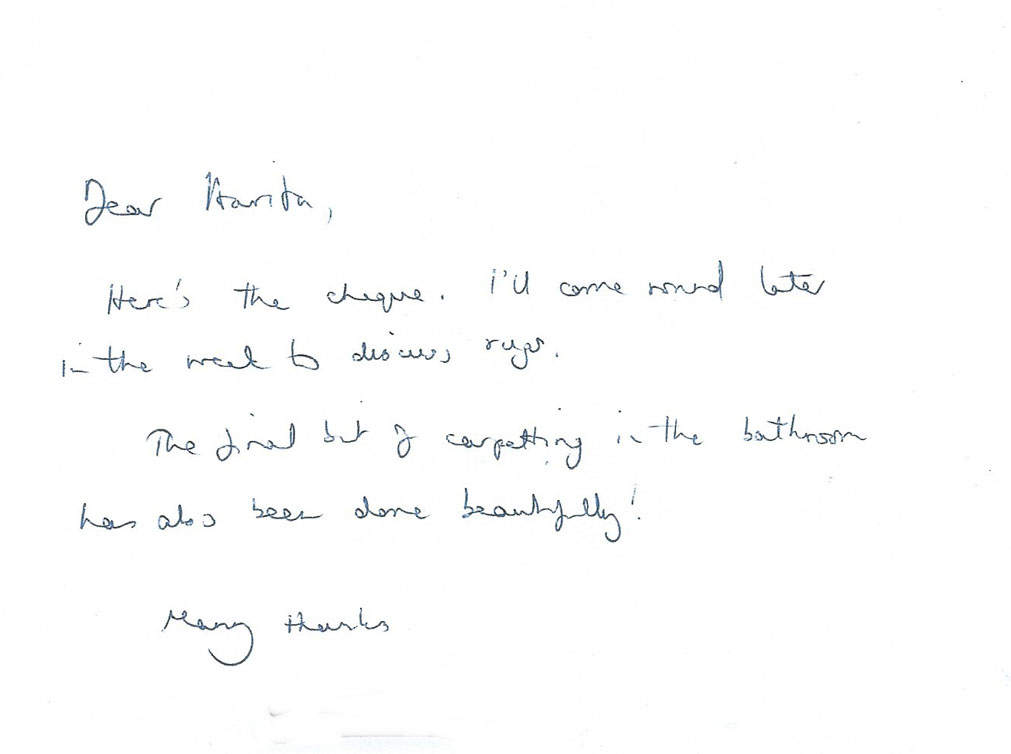 Dear
Here's the cheque. I'll come round later
in the week to discuss rugs.
The final bit of carpetting in the bathroom
has also been done beautifully!
Many thanks